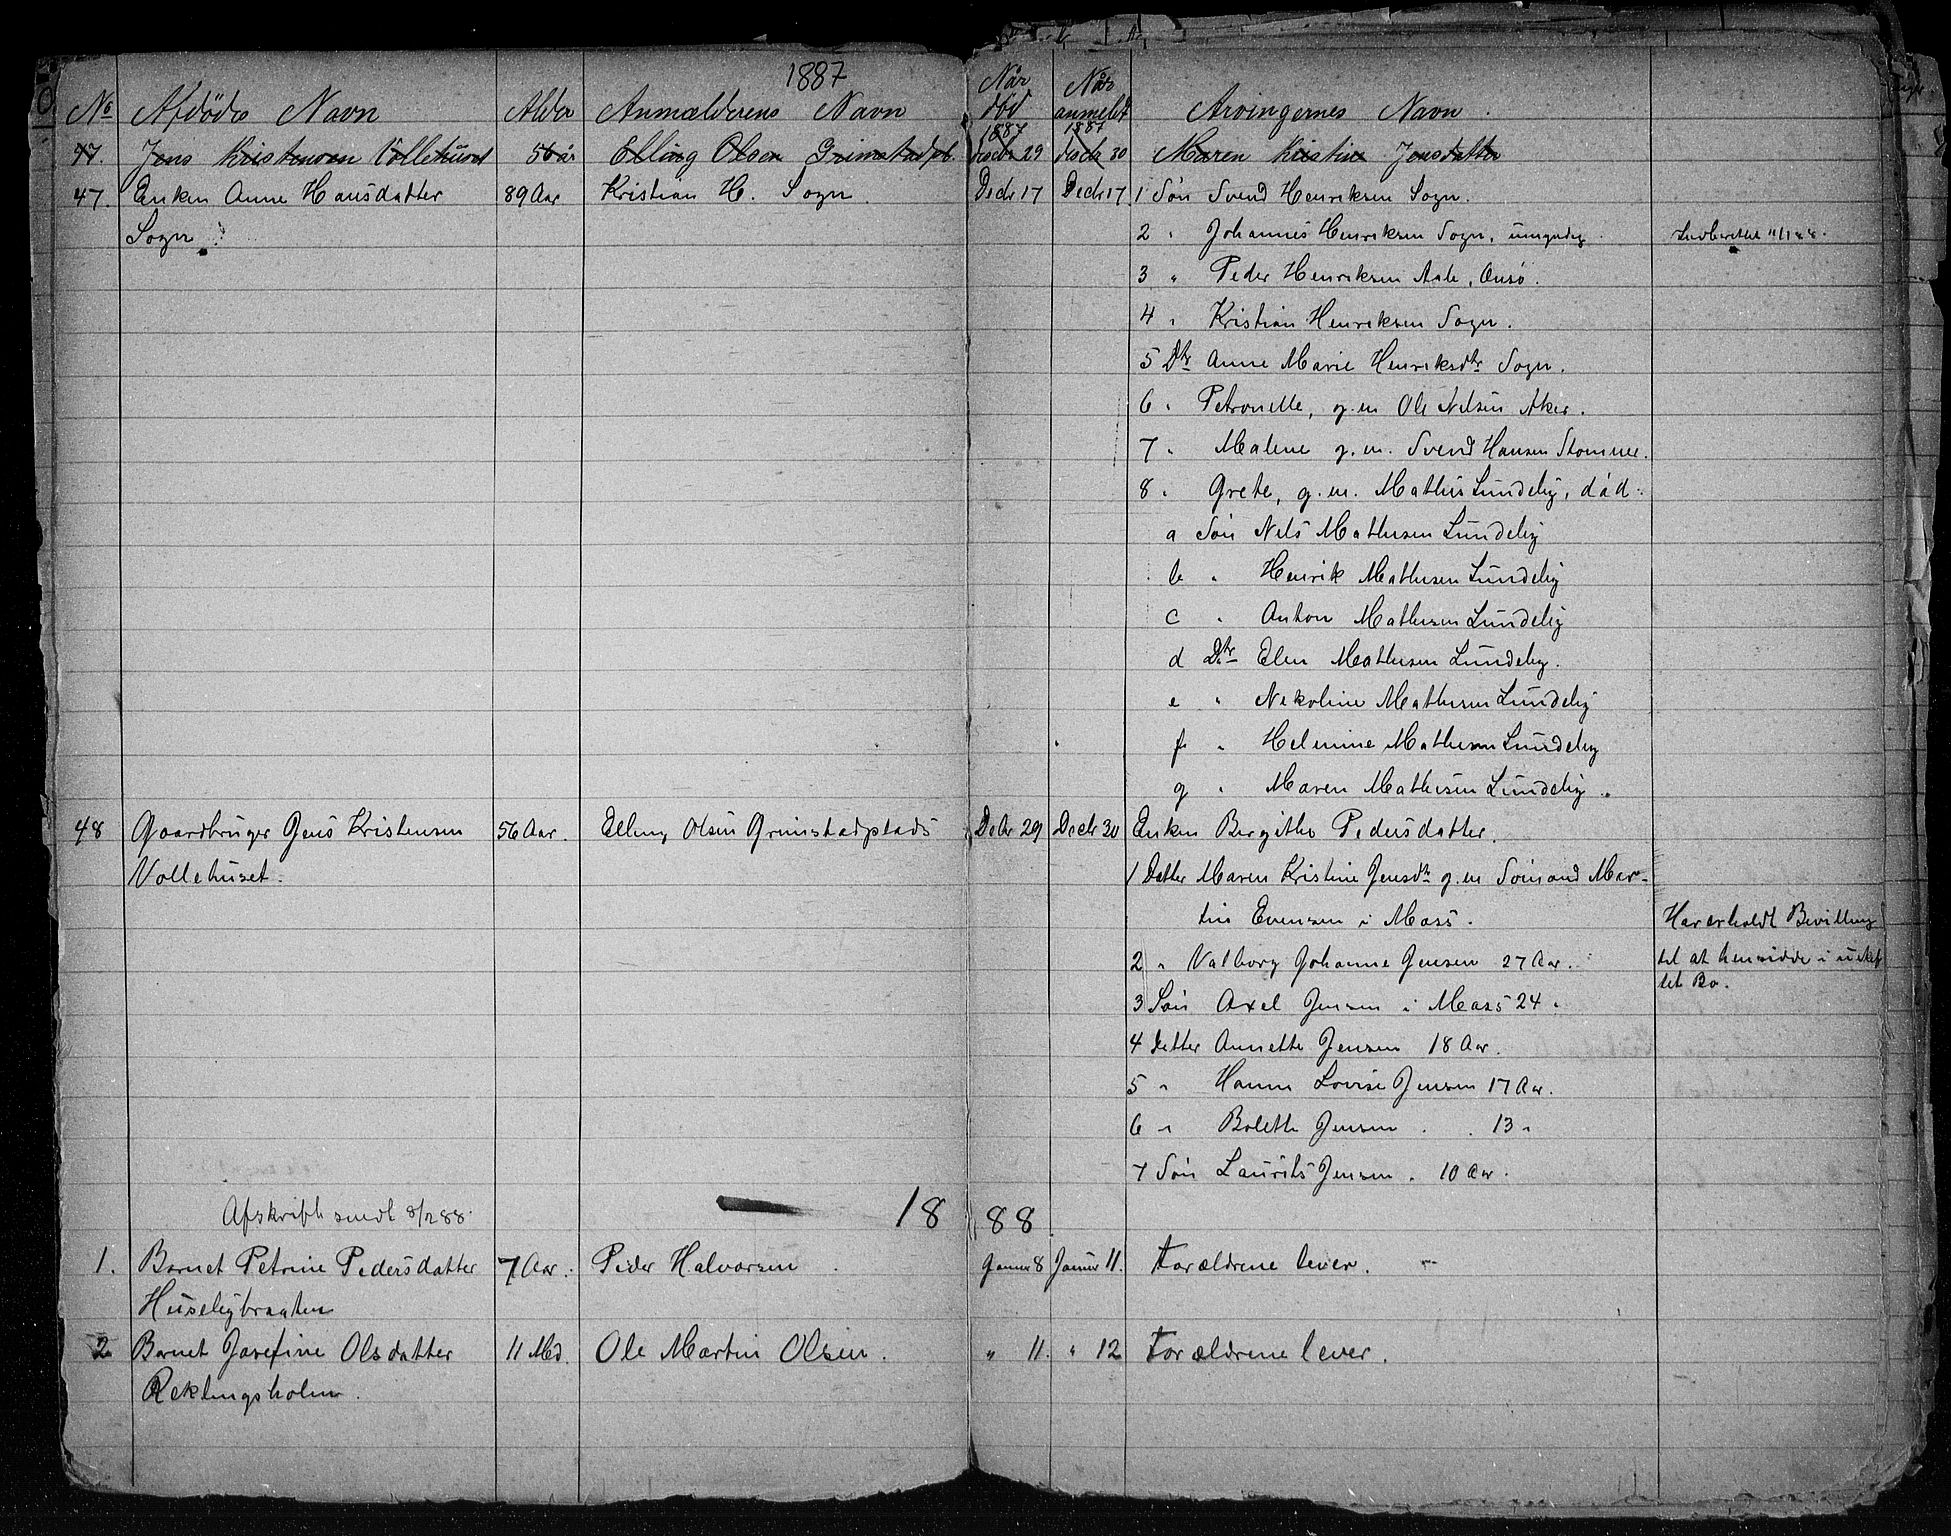 1887
No Afdødes Navn Alder Anmælderens Navn Når død Når anmeldt Arvingernes Navn.
1887 1887
47. Jens Kristensen Vollehuset 56 år Elling Olsen Grimstadpl. decbr 29 decbr 30 Maren Kristine Jensdatter
47. Enken Anne Hansdatter 89 Aar Kristian H. Sogn Decbr 17 Decbr 17 1 Søn Svend Henriksen Sogn.
Sogn. 2 " Johannes Henriksen Sogn, umyndig.
3 " Peder Henriksen Aale, Onsø.
4 " Kristian Henriksen Sogn.
5 Dtr Anne Marie Henriksdtr Sogn.
6 " Petronelle, g. m. Ole Nilsen Aker.
7 " Malene g. m. Svend Hansen Stomner.
8 " Grete, g. m. Mathis Lundeby, død:
a Søn Nels Mathisen Lundeby
b " Henrik Mathisen Lundeby
c " Anton Mathisen Lundeby
d Dtr Elen Mathisen Lundeby.
e " Nekoline Mathisen Lundeby
f " Helmine Mathisen Lundeby
g " Maren Mathisen Lundeby.
48 Gaardbruger Jens Kristensen 56 Aar. Elling Olsen Grimstadplads Decbr 29 Decbr 30 Enken Bergithe Pedersdatter.
Vollehuset. 1 Datter Maren Kristine Jensdtr g. m Sømand Mar-
tin Evensen i Moss. Har erholdt Bevilling
2 " Valborg Johanne Jensen 27 Aar. til at hensidde i uskif
3 Søn Axel Jensen i Moss 24 " tet Bo.
4 Datter Annette Jensen 18 Aar.
5 " Hanna Lovise Jensen 17 Aar.
6 " Bolette Jensen 13 "
7 Søn Laurits Jensen. 10 Aar.
Afskrift sendt 8/2 88. 1888
1. Barnet Petrine Pedersdatter 7 Aar. Peder Halvorsen Januar 8 Januar 11. Forældrene lever.
Husebybraaten
2 Barnet Josefine Olsdatter 11 Md. Ole Martin Olsen. " 11. " 12 Forældrene lever.
Reklingsholm.